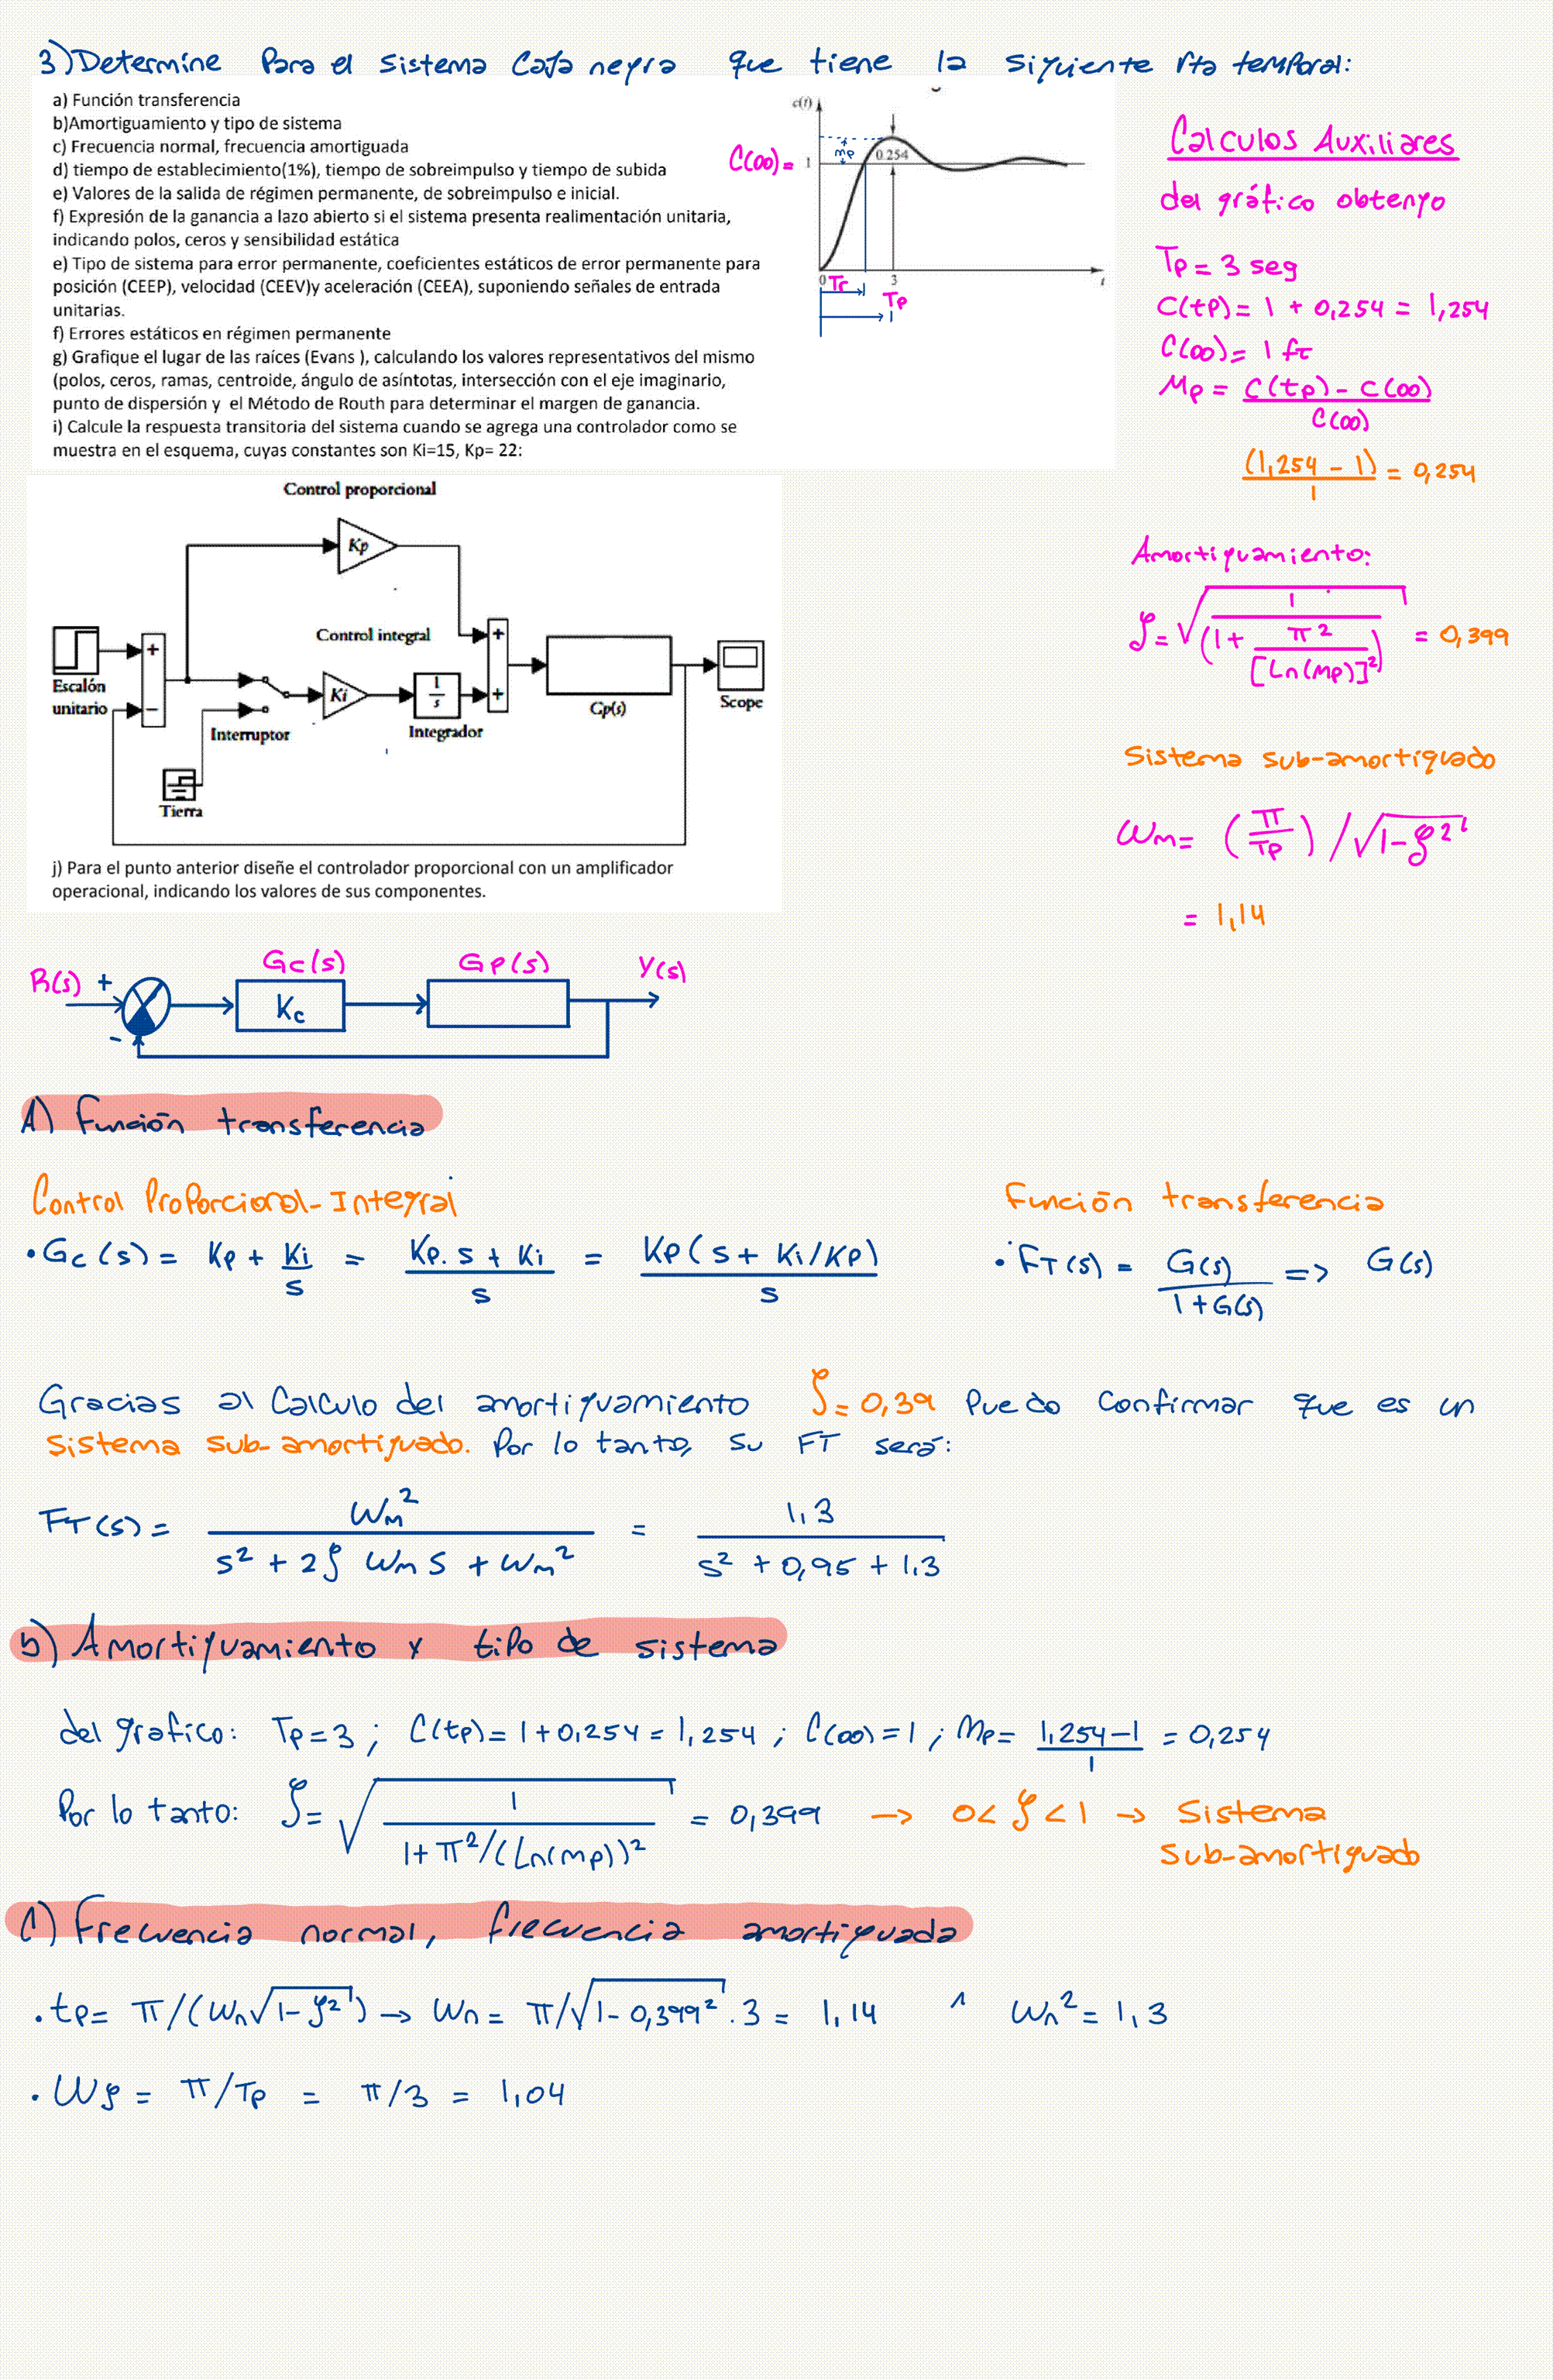 3) Determine Para el sistema Caja negra que tiene la siguiente rta temporal:
a) Función transferencia
b)Amortiguamiento y tipo de sistema
c) Frecuencia normal, frecuencia amortiguada
d) tiempo de establecimiento(1%), tiempo de sobreimpulso y tiempo de subida
e) Valores de la salida de régimen permanente, de sobreimpulso e inicial.
f) Expresión de la ganancia a lazo abierto si el sistema presenta realimentación unitaria,
indicando polos, ceros y sensibilidad estática
e) Tipo de sistema para error permanente, coeficientes estáticos de error permanente para
posición (CEEP), velocidad (CEEV)y aceleración (CEEA), suponiendo señales de entrada
unitarias.
f) Errores estáticos en régimen permanente
g) Grafique el lugar de las raíces (Evans ), calculando los valores representativos del mismo
(polos, ceros, ramas, centroide, ángulo de asíntotas, intersección con el eje imaginario,
punto de dispersión y el Método de Routh para determinar el margen de ganancia.
i) Calcule la respuesta transitoria del sistema cuando se agrega una controlador como se
muestra en el esquema, cuyas constantes son Ki=15, Kp= 22:
c(t)
C(∞)= 1
Mp
0.254
0
Tr
3
t
Tp
Calculos Auxiliares
del gráfico obtengo
Tp = 3 seg
C(tp) = 1 + 0,254 = 1,254
C(∞) = 1 ft
Mp = C(tp) - C(∞)
C(∞)
(1,254 - 1) = 0,254
1
Amortiguamiento:
ζ = √(1 / (1 + π² / [Ln(Mp)]²)) = 0,399
Sistema sub-amortiguado
Wn = (π/Tp) / √1-ζ²
= 1,14
Control proporcional
Kp
Control integral
Escalón
unitario
+
−
Interruptor
Ki
1
s
Integrador
+
+
Gp(s)
Scope
Tierra
j) Para el punto anterior diseñe el controlador proporcional con un amplificador
operacional, indicando los valores de sus componentes.
R(s) + - Gc(s) Kc GP(s) Y(s)
A) Función transferencia
Control Proporcional-Integral
• Gc(s) = Kp + Ki/s = Kp.s + Ki / s = Kp(s + Ki/Kp) / s
Función transferencia
• FT(s) = G(s) / 1+G(s) => G(s)
Gracias al Calculo del amortiguamiento ζ = 0,39 Puedo Confirmar que es un
sistema sub-amortiguado. Por lo tanto, su FT será:
FT(s) = Wn² / s² + 2ζ Wn s + Wn² = 1,3 / s² + 0,9s + 1,3
b) Amortiguamiento y tipo de sistema
del grafico: Tp=3 ; C(tp)=1+0,254=1,254 ; C(∞)=1 ; Mp= 1,254-1 / 1 = 0,254
Por lo tanto: ζ = √(1 / 1+π²/(Ln(Mp))²) = 0,399 → 0<ζ<1 → Sistema
sub-amortiguado
C) Frecuencia normal, frecuencia amortiguada
• tp= π/(Wn√1-ζ²) → Wn = π/√1-0,399² . 3 = 1,14 ^ Wn² = 1,3
• Wζ = π/Tp = π/3 = 1,04